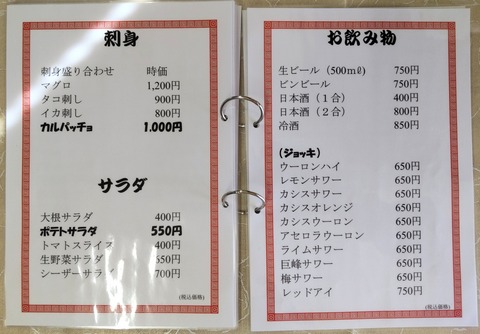 刺身
刺身盛り合わせ 時価
マグロ 1,200円
タコ刺し 900円
イカ刺し 800円
カルパッチョ 1,000円
サラダ
大根サラダ 400円
ポテトサラダ 550円
トマトスライス 400円
生野菜サラダ 550円
シーザーサラダ 700円
(税込価格)
お飲み物
生ビール（500㎖） 750円
ビンビール 750円
日本酒（１合） 400円
日本酒（２合） 800円
冷酒 850円
(ジョッキ)
ウーロンハイ 650円
レモンサワー 650円
カシスサワー 650円
カシスオレンジ 650円
カシスウーロン 650円
アセロラウーロン 650円
ライムサワー 650円
巨峰サワー 650円
梅サワー 650円
レッドアイ 750円
(税込価格)